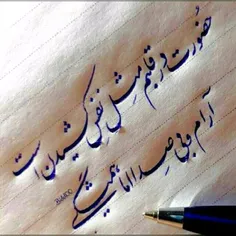 حضورت در قلبم مثل نفس کشیدن است
آرام و بی صدا اما همیشگی